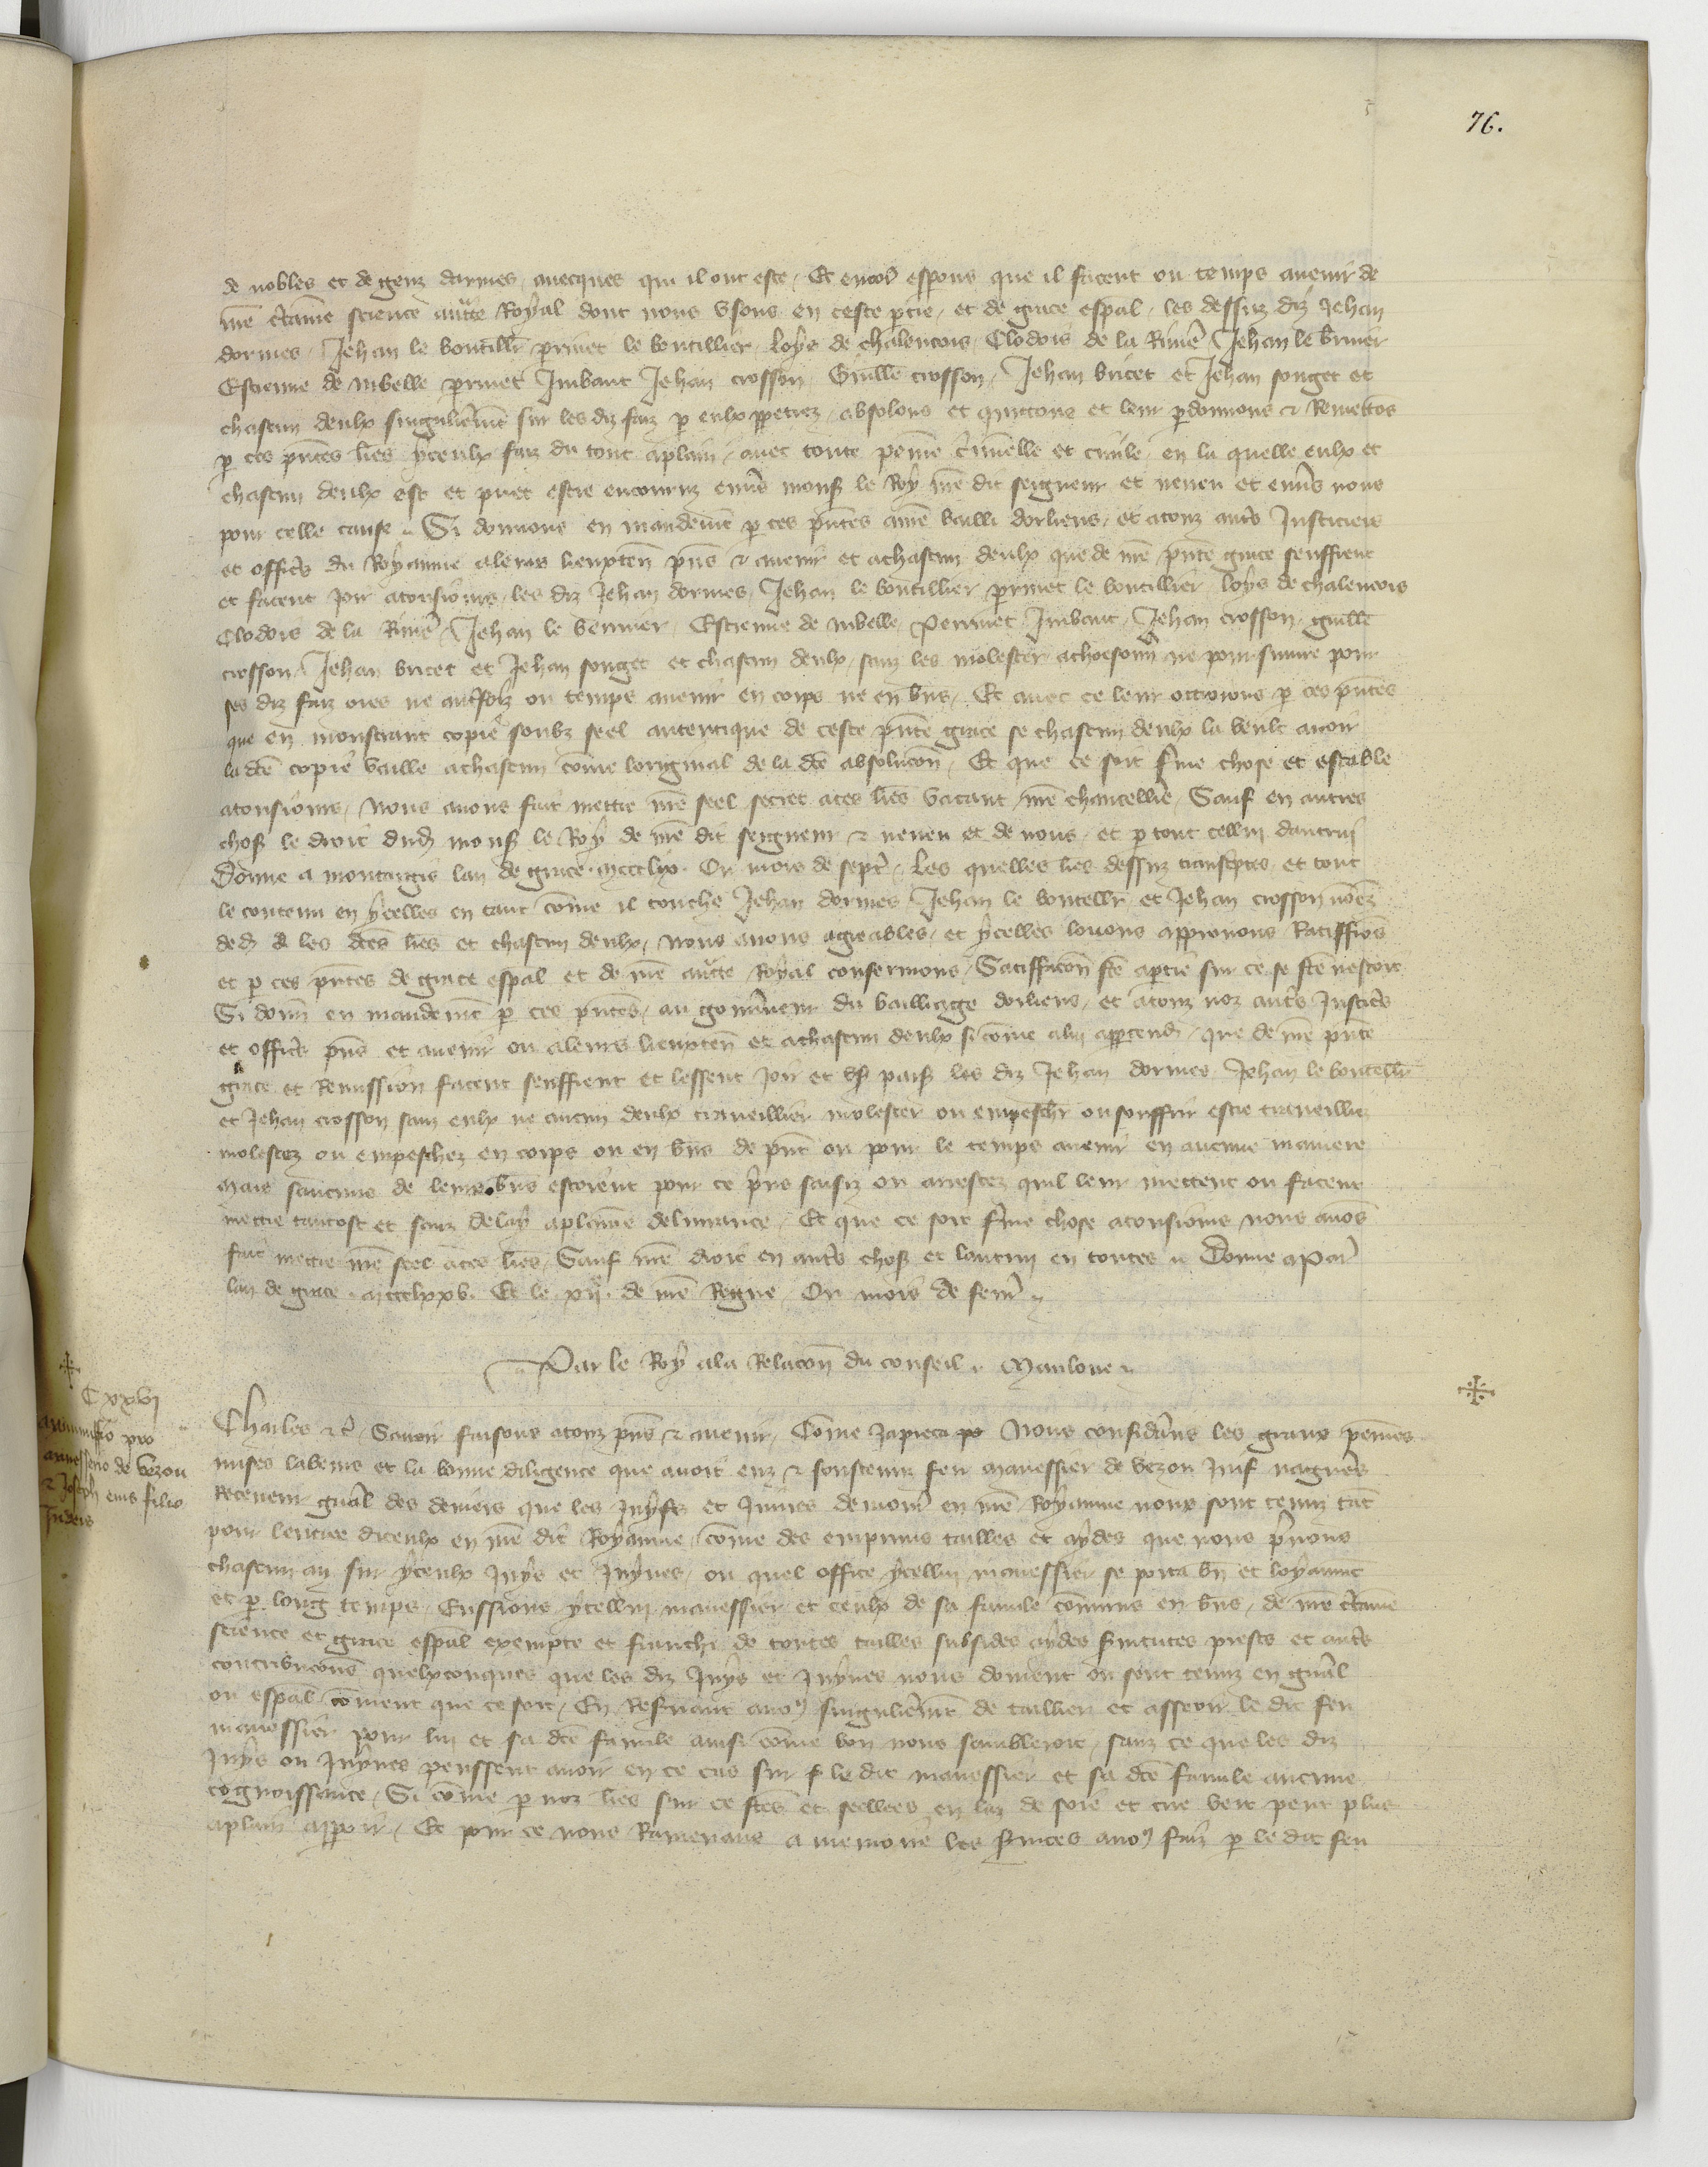 76.
de nobles et de genz darmes avecques qui il ont este / Et encor esperons que il facent ou temps avenir de
nre certaine science auctte Royal dont nous usons en ceste ptie / et de grace espal / les dessuz diz Jehan
dormes / Jehan le boutillr / prinet le boutillier / loys de chalencois / Clodois de la Rivie / Jehan le
Estienne de nibelle prinet Imbaut Jehan crosson / Guille crosson / Jehan bricet et Jehan songet et
chascun deulx singulierement sur les diz faiz p eulx ppetrez / absolons et quittons et leur pdonnons & Remettons
p ces pntes lres yceulx faiz du tout aplain / avec toute peinne criminelle et civile / en la quelle eulx et
chascun deulx est et puet estre encouruz envs mons le Roy nre dit seigneur et neveu et envs nous
pour celle cause // Si donnons en mandement p ces pntes au bailli dorliens / et atouz autrs Justiciers
et officrs du Royaume aleurs lieuxten pns & avenir et achascun deulx que de nre pnte grace seuffrent
et facent joir atousiours / les diz Jehan dormes / Jehan le boutillier prinet le boutillier / loys de chalencois
Clodois de la Rivie / Jehan le / Estienne de nibelle / Perrinet Imbaut / Jehan crosson / guille
crosson / Jehan bricet et Jehan songet et chascun deulx / sanz les molester achoesonn ne poursuivre pour
ses diz faiz ores ne autrfoiz ou temps avenir en corps ne en bns / Et avec ce leur octroions p ces pntes
que en monstrant copie soubz seel autentique de ceste pnte grace se chascun deulx la veult avoir
la dte copie vaille achascun come loriginal de la dte absolucon / Et que ce soit fme chose et estable
atousiours / Nous avons fait mettre nre seel secret aces lres vacant nre chancellrie / Sauf en autres
chos le droit dud mons le Roy de nre dit seigneur & neveu et de nous / et p tout cellui dautrui
Donne a montargis lan de grace mccclix Ou mois de sept / Les quelles lres dessuz transcptes et tout
le contenu en ycelles en tant come il touche Jehan dormes Jehan le boutellr et Jehan crosson nomez
ded les dtes lres et chascun deulx / nous avons agreables / et ycelles louons approuvons Ratiffions
et p ces pntes de grace espal et de nre auctte Royal confermons / Satiffacon fte aptie sur ce se fte nestoit
Si donn en mandement p ces pntes / au gouvneur du bailliage dorliens / et atouz noz autrs Justicrs
et officrs pns et avenir ou aleurs lieuxten et achascun deulx si come alui apptendr / que de nre pnte
grace et Remission facent seuffrent et lessent joir et us paisi les diz Jehan dormes Jehan le boutellr
et Jehan crosson sanz eulx ne aucun deulx traveillier molester ou empeschr ou souffrir estre traveilliez
molestez ou empeschez en corps ou en bns de pnt ou pour le temps avenir en aucune maniere
Mais saucuns de leurs bns estoient pour ce prins saisiz ou arrestez quil leur mettent ou facent
mettre tantost et sanz delay aplaine delivrance / Et que ce soit fme chose atousiours nous avons
fait mettre nre seel aces lres / Sauf nre droit en autrs chos et lautrui en toutes // Donne apar
lan de grace mccclxxv Et le xiie de nre Regne Ou mois de fevr //
Par le Roy ala Relacon du conseil // Mauloue //
C xxvi
pro
manesserio de Vezou
& Joseph eius filio
Judeis
Charles &c Savoir faisons atouz pns & avenir / Come Japieca po Nous considerans les granz peines
mises labeurs et la bonne diligence que avoit euz & soustenuz feu manessier de vezou Juif nagueres
Receveur gnal des deniers que les Juyfs et Juives demour en nre Royaume nous sont tenuz tant
pour lentree diceulx en nre dit Royaume / come des emprunts tailles et aydes que nous prnons
chascun an sur yceulx Juys et Juyves / ou quel office ycellui manessier se porta bn et loyaument
et p long temps / Eussions ycellui manessier et ceulx de sa famile comuns en bns / de nre certaine
science et grace espal exempte et franchi de toutes tailles subsides aydes fintutes prests et autrs
contribucons quelxconques que les diz Juys et Juyves nous doivent ou sont tenuz en gnal
ou espal coment que ce soit / En Resvant a nos singulierement de taillier et asseoir le dit feu
manessier pour lui et sa dte famile ainsi come bon nous sembleroit / sanz ce que les diz
Juys ou Juyves peussent avoir en ce cas sur le dit manessier et sa dte famile aucune
cognoissance / Si come p noz lres sur ce ftes et seellees en laz de soie et cire vert peut plus
aplain apparoir / Et pour ce nous Ramenans a memoire les services a nos faiz p le dit feu